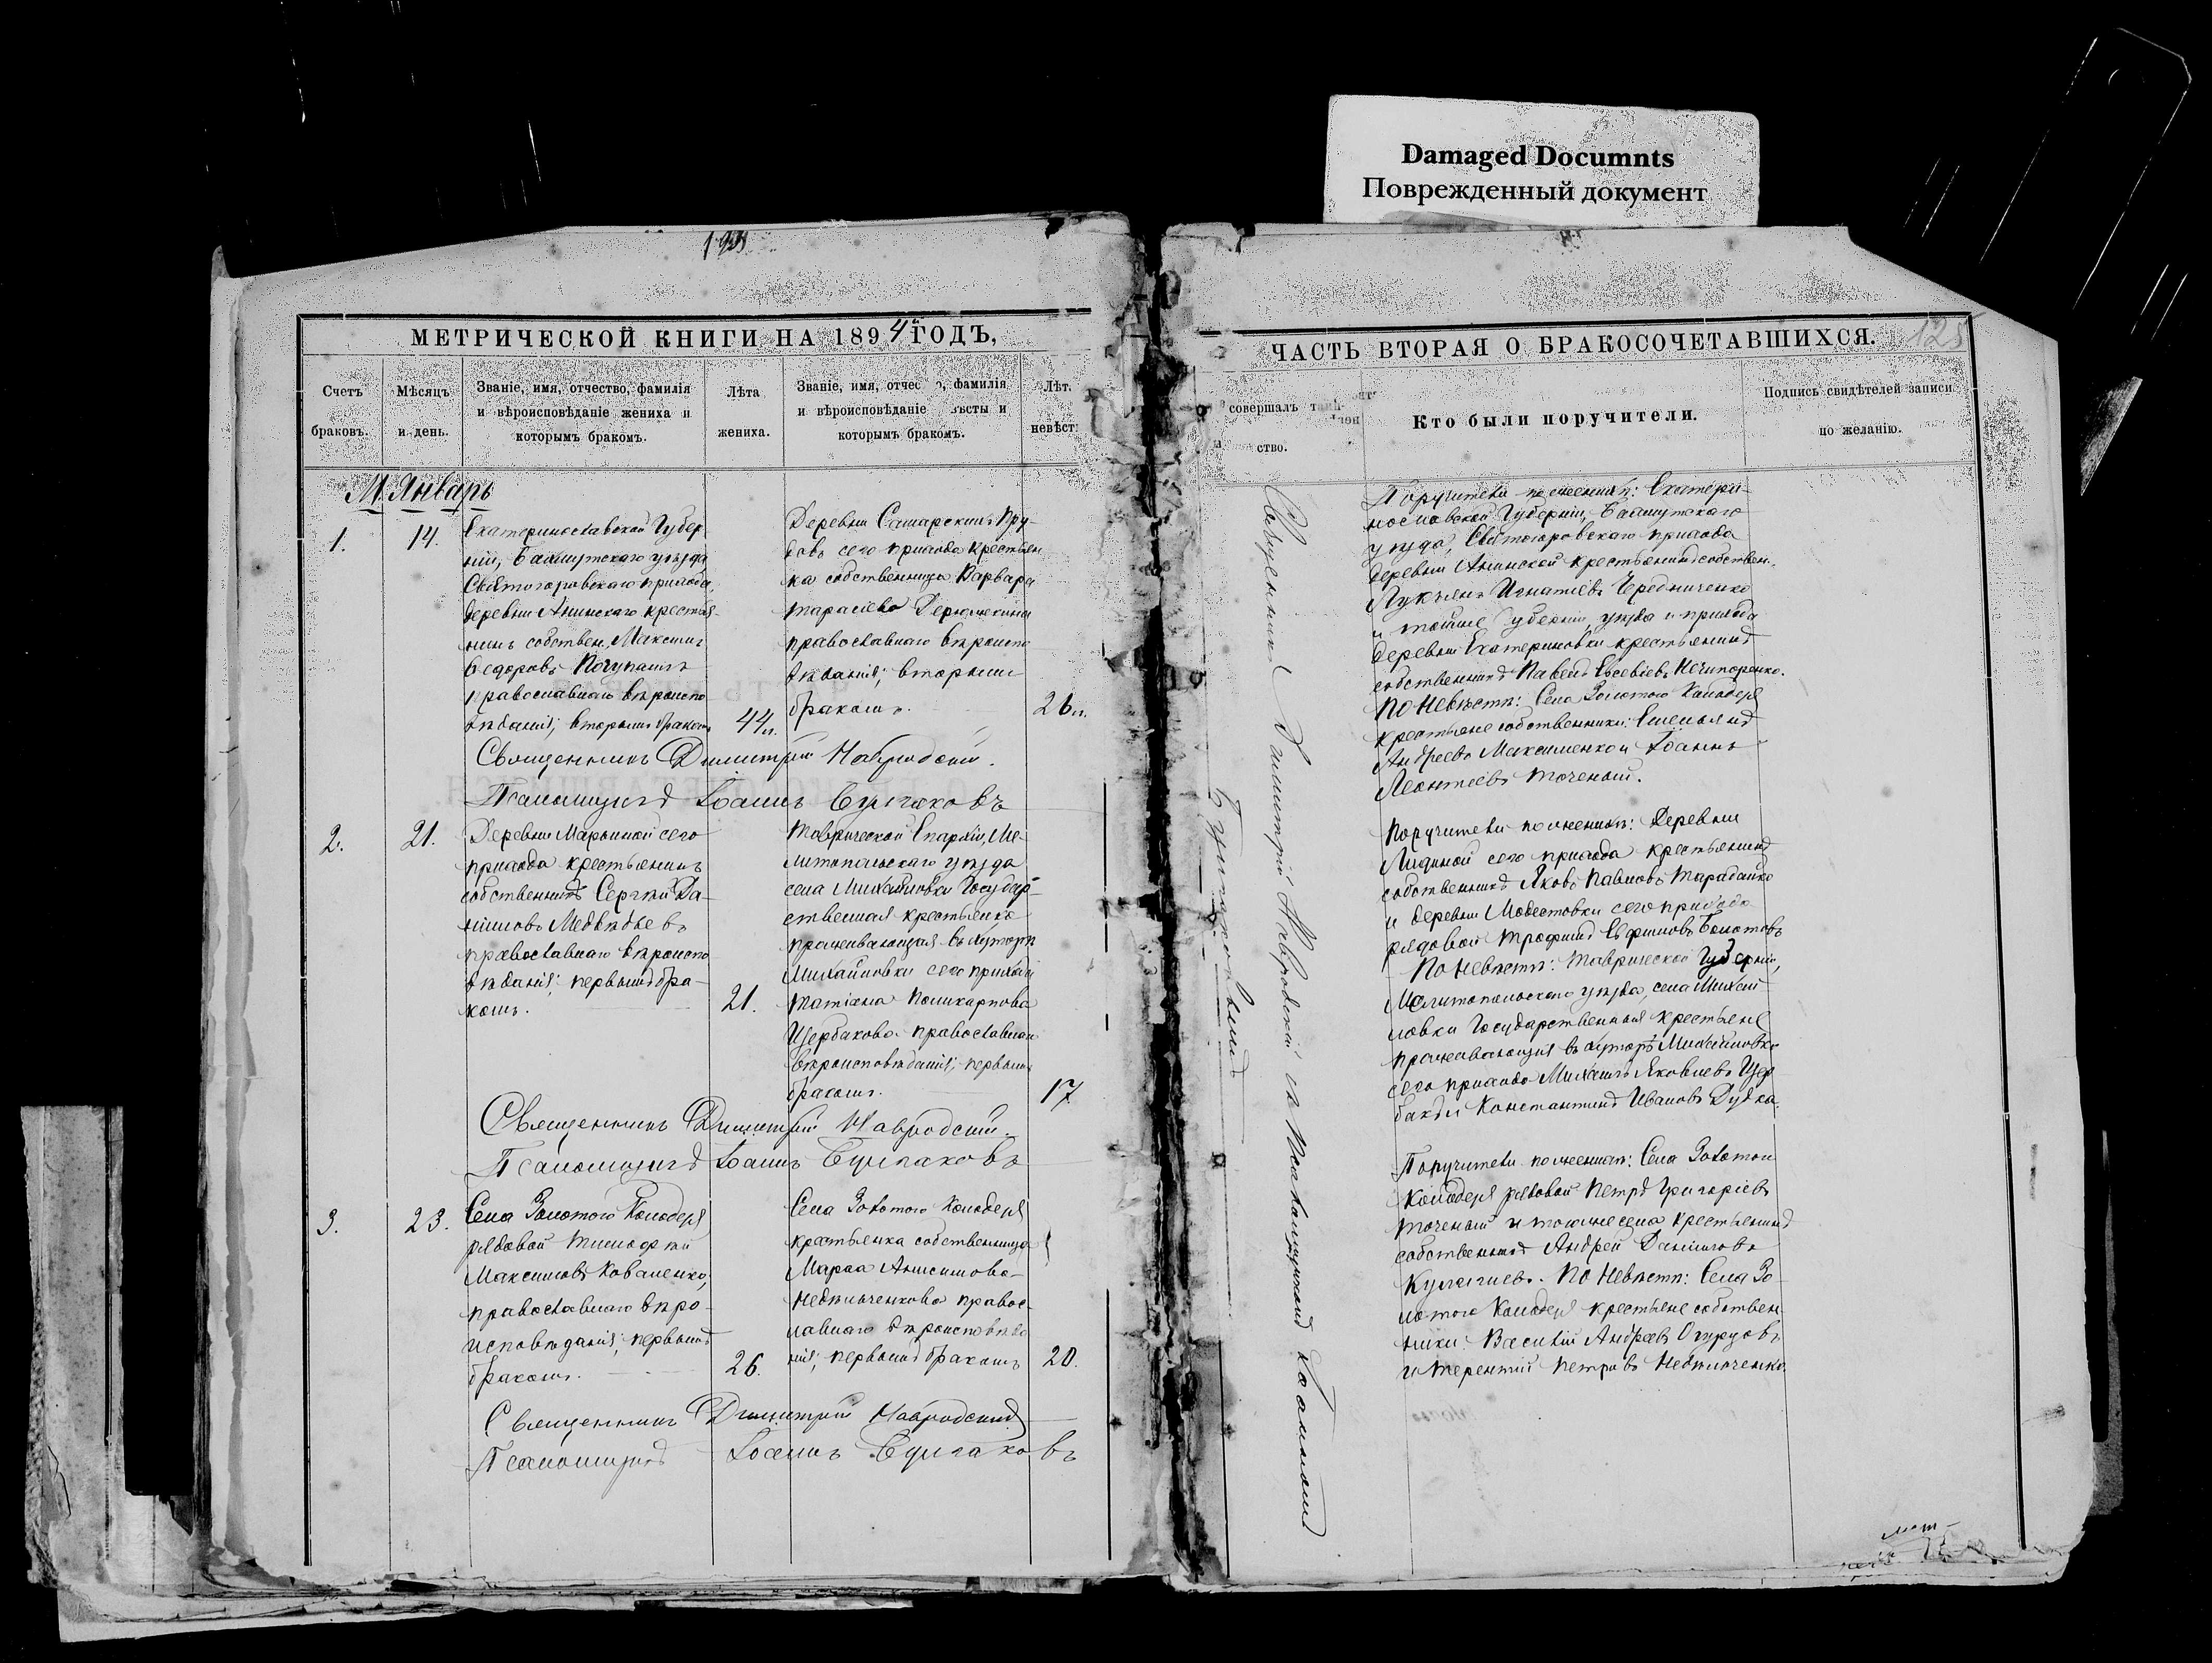 Damaged Documnts
Поврежденный документ
МЕТРИЧЕСКОЙ КНИГИ НА 1894 ГОДЪ,
Счетъ браковъ.
Мѣсяцъ и день.
Званіе, имя, отчество, фамилія
и вѣроисповѣданіе жениха и
которымъ бракомъ.
Лѣта
жениха.
Званіе, имя, отчес о, фамилія
и вѣроисповѣданіе ѣсты и
которымъ бракомъ.
Лѣт.
невѣст
М. Январь
1.
14.
Екатеринославской Губер
ніи, Бахмутскаго уѣзда
Святогоровскаго прихода,
деревни Анинскаго крестья-
нинъ собствен. Максимъ
Ѳедоровъ
православнаго вѣроиспо
вѣданія; вторымъ бракомъ
44 л.
Деревни Самарскихъ Пру-
довъ сего прихода крестьян
ка собственница Варвара
Тарасіева
православнаго вѣроиспо
вѣданія; вторымъ
бракомъ.
26 л.
Священникъ Димитрій Навродскій.
Псаломщикъ Іоаннъ Булгаковъ
2.
21.
Деревни Марьиной сего
прихода крестьянинъ
собственникъ Сергѣй Да-
ніиловъ Медвѣдьевъ
православнаго вѣроиспо
вѣданія; первымъ бра-
комъ.
21.
Таврической Епархіи, Ме-
литопольскаго уѣзда
села Михайловки Государ-
ственная крестьянка
проживающая въ хуторѣ
Михайловки сего прихода
Татіана Поликарпова
Щербакова православнаго
вѣроисповѣданія; первымъ
бракомъ.
17
Священникъ Димитрій Навродскій.
Псаломщикъ Іоаннъ Булгаковъ
3.
23.
Села Золотого Колодезя
рядовой Тимофѣй
Максимовъ Коваленко,
православнаго вѣро-
исповѣданія; первымъ
бракомъ.
26.
Села Золотого Колодезя
крестьянка собственница
Марѳа Анисимова
Недѣльченкова правос-
лавнаго вѣроисповѣда
нія; первымъ бракомъ
20.
Священникъ Димитрій Навродскій
Псаломщикъ Іоаннъ Булгаковъ
ЧАСТЬ ВТОРАЯ О БРАКОСОЧЕТАВШИХСЯ.
125
совершалъ таин-
ство.
Кто были поручители.
Подпись свидѣтелей записи
по желанію.
Священникъ Димитрій Навродскій съ Псаломщикомъ Іоанномъ
Булгаковымъ
Поручители по женихѣ: Екатери-
нославской Губерніи, Бахмутскаго
уѣзда, Святогоровскаго прихода
деревни Анинской крестьянинъ собствен.
Лукьянъ Игнатіевъ Чередниченко
и тойже Губерніи, уѣзда и прихода
деревни Екатериновки крестьянинъ
собственникъ Павелъ Евсевіевъ Нечипоренко.
По Невѣстѣ: Села Золотого Колодезя
крестьяне собственники: Емельянъ
Андреевъ Максименко и Іоаннъ
Леонтіевъ Точеный.
Поручители по женихѣ: Деревни
Лидиной сего прихода крестьянинъ
собственникъ Яковъ Павловъ Тарадайко
и деревни Модестовки сего прихода
рядовой Трофимъ Евфимовъ Болотовъ
По Невѣстѣ: Таврической Губерніи,
Мелитопольскаго уѣзда, села Михай-
ловки Государственныя крестьяне
проживающія въ хуторѣ Михайловки
сего прихода Михаилъ Яковлевъ Щер
баковъ и Константинъ Ивановъ Дудка.
Поручители по женихѣ: Села Золотого
Колодезя рядовой Петръ Григоріевъ
Точеный и тогоже села крестьянинъ
собственникъ Андрей Данииловъ
По Невѣстѣ: Села Зо-
лотого Колодезя крестьяне собствен
ники: Василій Андреевъ Огурцовъ
и Терентій Петровъ Недѣльченко.